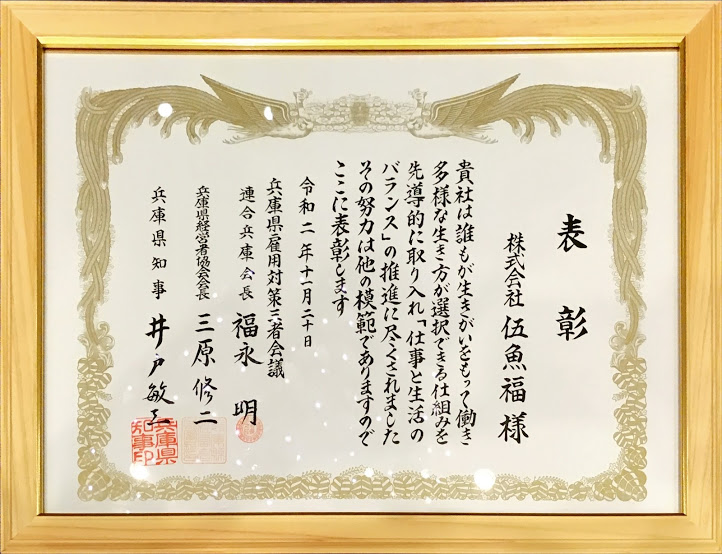 表彰
株式会社 伍魚福 様
貴社は誰もが生きがいをもって働き
多様な生き方が選択できる仕組みを
先導的に取り入れ「仕事と生活の
バランス」の推進に尽くされました
その努力は他の模範でありますので
ここに表彰します
令和二年十一月二十日
兵庫県雇用対策三者会議
連合兵庫会長 福永 明
兵庫県経営者協会会長 三原修二
兵庫県知事 井戸敏三
兵庫県
知事印